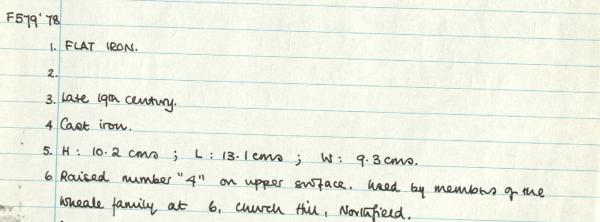 F579'78
1. FLAT IRON.
2.
3. Late 19th century.
4 Cast iron.
5. H: 10.2 cms ; L: 13.1 cms ; W: 9.3 cms.
6 Raised number "4" on upper surface. Used by members of the
Wheale family at 6, Church Hill, Northfield.